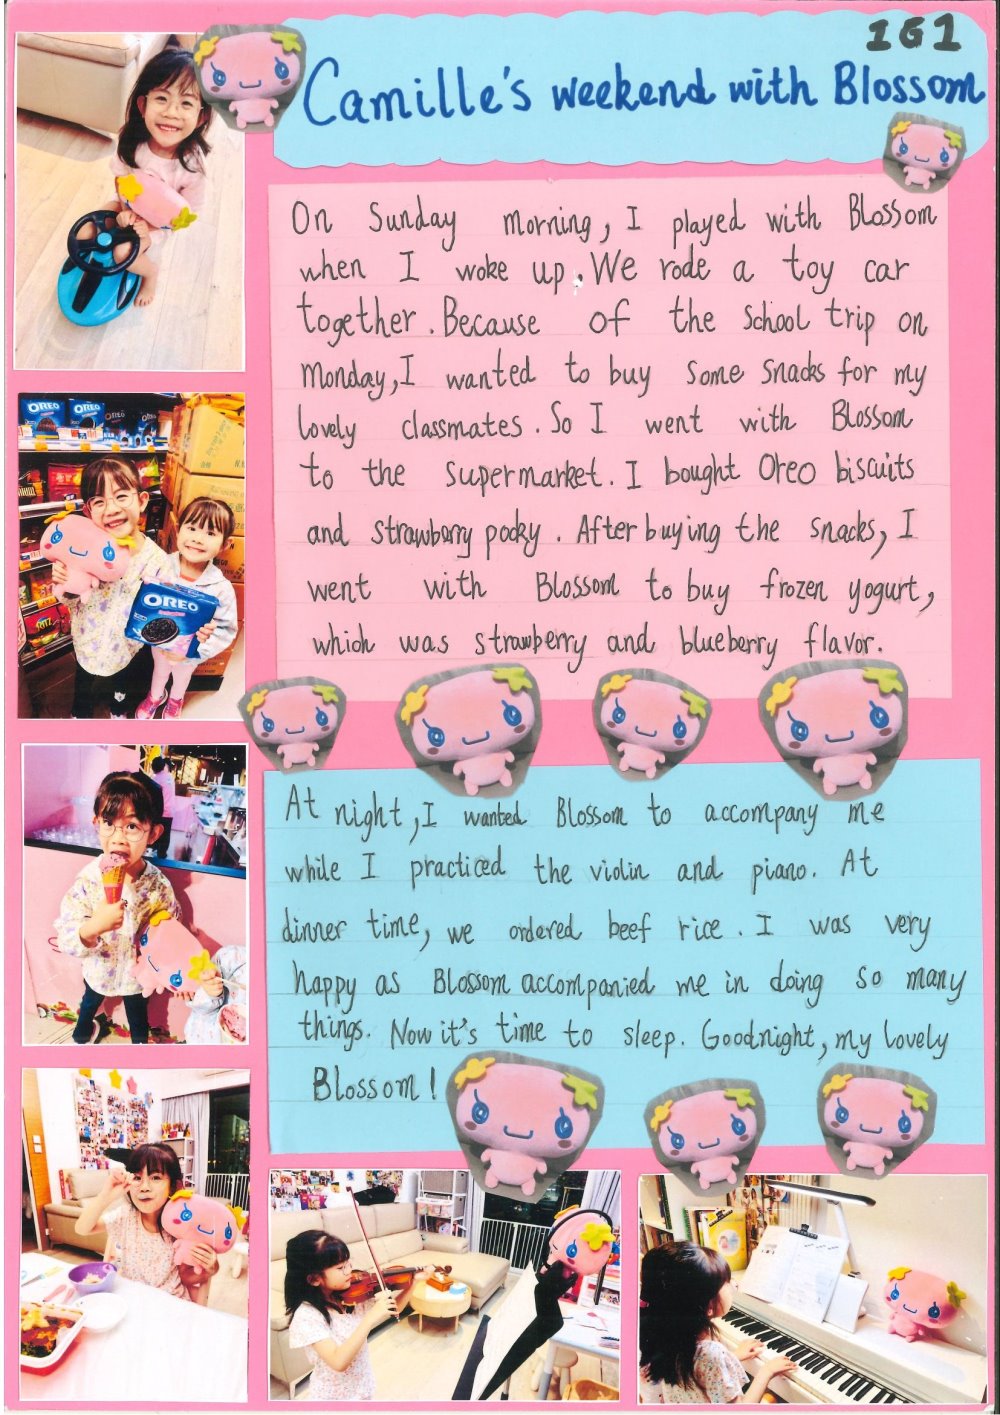 1G1
Camille's weekend with Blossom
On Sunday morning, I played with Blossom
when I woke up. We rode a toy car
together. Because of the school trip on
Monday, I wanted to buy some snacks for my
lovely classmates. So I went with Blossom
to the supermarket. I bought Oreo biscuits
and strawberry pocky. After buying the snacks, I
went with Blossom to buy frozen yogurt,
which was strawberry and blueberry flavor.
At night, I wanted Blossom to accompany me
while I practiced the violin and piano. At
dinner time, we ordered beef rice. I was very
happy as Blossom accompanied me in doing so many
things. Now it's time to sleep. Goodnight, my lovely
Blossom!
OREO
OREO
OREO
OREO
RITZ